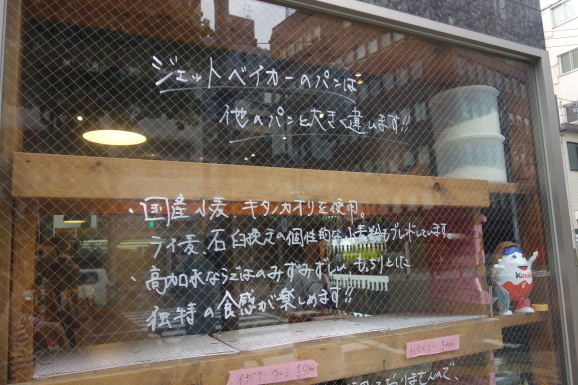 ジェットベイカーのパンは
他のパンと大きく違います!!
・国産小麦、キタノカオリを使用。
ライ麦、石臼挽きの個性的な小麦粉をブレンドしています。
・高加水ならではのみずみずしい もっちりとした
独特の食感が楽しめます!!
Kinder